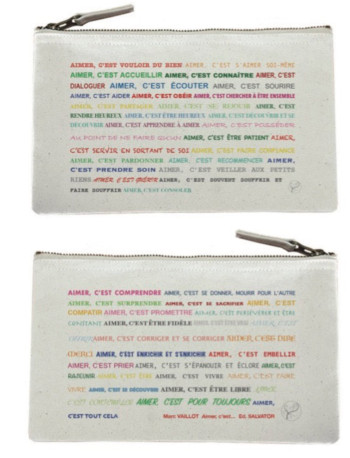 AIMER, C'EST VOULOIR DU BIEN AIMER, C'EST S'AIMER SOI-MÊME
AIMER, C'EST ACCUEILLIR AIMER, C'EST CONNAÎTRE AIMER, C'EST
DIALOGUER AIMER, C'EST ÉCOUTER AIMER, C'EST SOURIRE
AIMER, C'EST AIDER AIMER, C'EST OBÉIR AIMER, C'EST CHERCHER À ÊTRE ENSEMBLE
AIMER, C'EST PARTAGER AIMER, C'EST SE RÉJOUIR AIMER, C'EST
RENDRE HEUREUX AIMER, C'EST ÊTRE HEUREUX AIMER, C'EST DÉCOUVRIR ET SE
DÉCOUVRIR AIMER, C'EST APPRENDRE À AIMER AIMER, C'EST POSSÉDER
AU POINT DE NE FAIRE QU'UN AIMER, C'EST ÊTRE PATIENT AIMER,
C'EST SERVIR EN SORTANT DE SOI AIMER, C'EST FAIRE CONFIANCE
AIMER, C'EST PARDONNER AIMER, C'EST RECOMMENCER AIMER,
C'EST PRENDRE SOIN AIMER, C'EST VEILLER AUX PETITS
RIENS AIMER, C'EST AIMER, C'EST SOUVENT SOUFFRIR ET
FAIRE SOUFFRIR AIMER, C'EST CONSOLER
AIMER, C'EST COMPRENDRE AIMER, C'EST SE DONNER, MOURIR POUR L'AUTRE
AIMER, C'EST SURPRENDRE AIMER, C'EST SE SACRIFIER AIMER, C'EST
COMPATIR AIMER, C'EST PROMETTRE AIMER, C'EST PERSÉVÉRER ET ÊTRE
CONFIANT AIMER, C'EST ÊTRE FIDÈLE AIMER, C'EST
AIMER, C'EST CORRIGER ET SE CORRIGER AIMER, C'EST DIRE
MERCI AIMER, C'EST ENRICHIR ET S'ENRICHIR AIMER, C'EST EMBELLIR
AIMER, C'EST PRIER AIMER, C'EST S'ÉPANOUIR ET ÉCLORE AIMER, C'EST
RAJEUNIR AIMER, C'EST VIVRE AIMER, C'EST FAIRE
VIVRE AIMER, C'EST SE DÉCOUVRIR AIMER, C'EST ÊTRE LIBRE AIMER,
C'EST AIMER, C'EST POUR TOUJOURS AIMER,
C'EST TOUT CELA Marc VAILLOT Aimer, c'est... Ed. SALVATOR